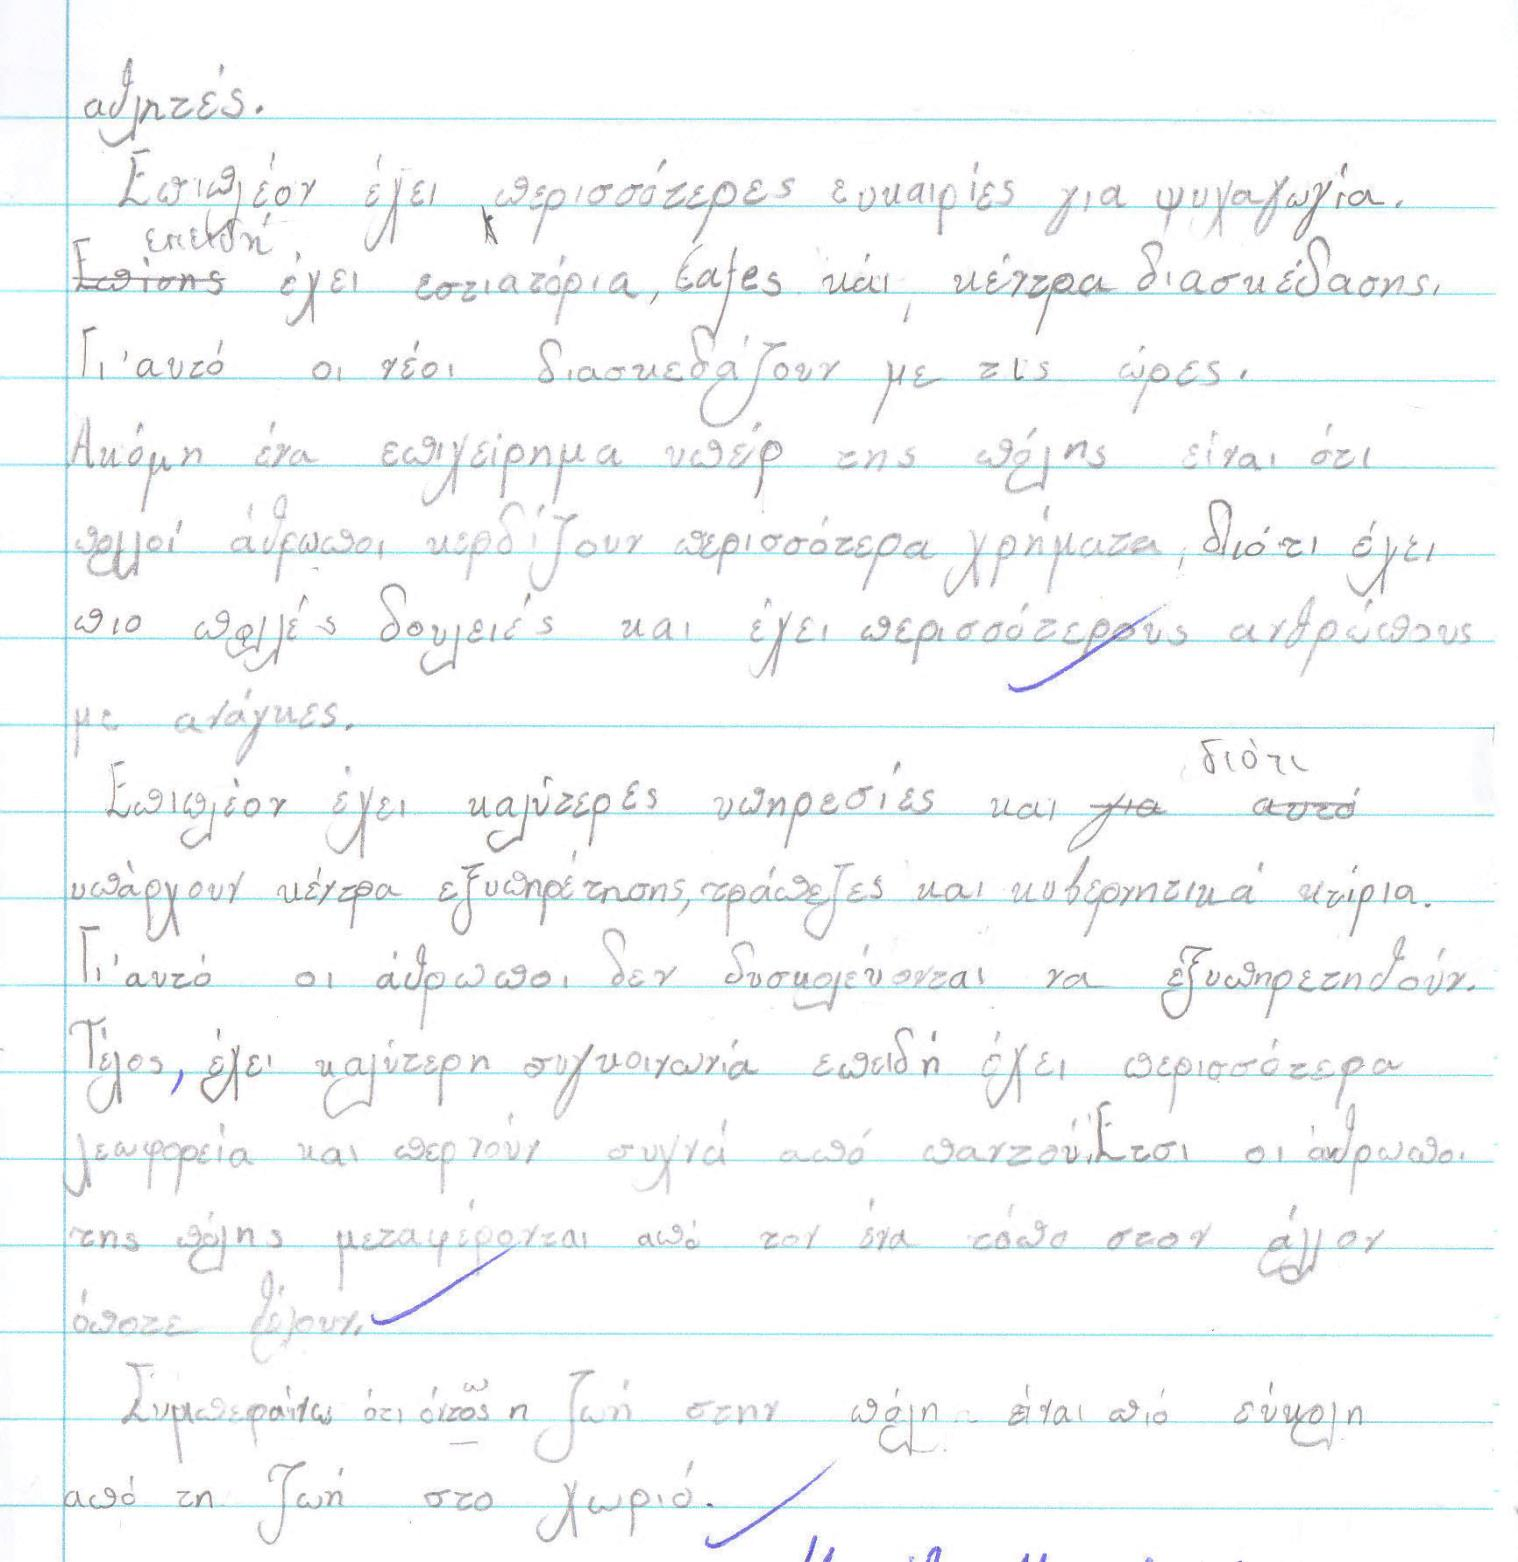 αθλητές.
Επιπλέον έχει περισσότερες ευκαιρίες για ψυχαγωγία.
επειδή
Επίσης έχει εστιατόρια, καfες κάι κέντρα διασκέδασης.
Γι'αυτό οι νέοι διασκεδάζουν με τις ώρες.
Ακόμη ένα επιχείρημα υπέρ της πόλης είναι ότι
πολλοί άθρωποι κερδίζουν περισσότερα χρήματα, διότι έχει
πιο πολλές δουλειές και έχει περισσότερους ανθρώπους
με ανάγκες.
διότι
Επιπλέον έχει καλύτερες υπηρεσίες και για αυτό
υπάρχουν κέντρα εξυπηρέτησης, τράπεζες και κυβερνητικά κτίρια.
Γι'αυτό οι άθρωποι δεν δυσκολεύονται να εξυπηρετηθούν.
Τέλος, έχει καλύτερη συγκοινωνιά επειδή έχει περισσότερα
λεωφορεία και περνούν συχνά από παντού. Έτσι οι άθρωποι
της πόλης μεταφέρονται από τον ένα τόπο στον άλλον
όποτε θέλουν.
ω
Συμπεραίνω ότι όντος η ζωή στην πόλη είναι πιό εύκολη
από τη ζωή στο χωριό.